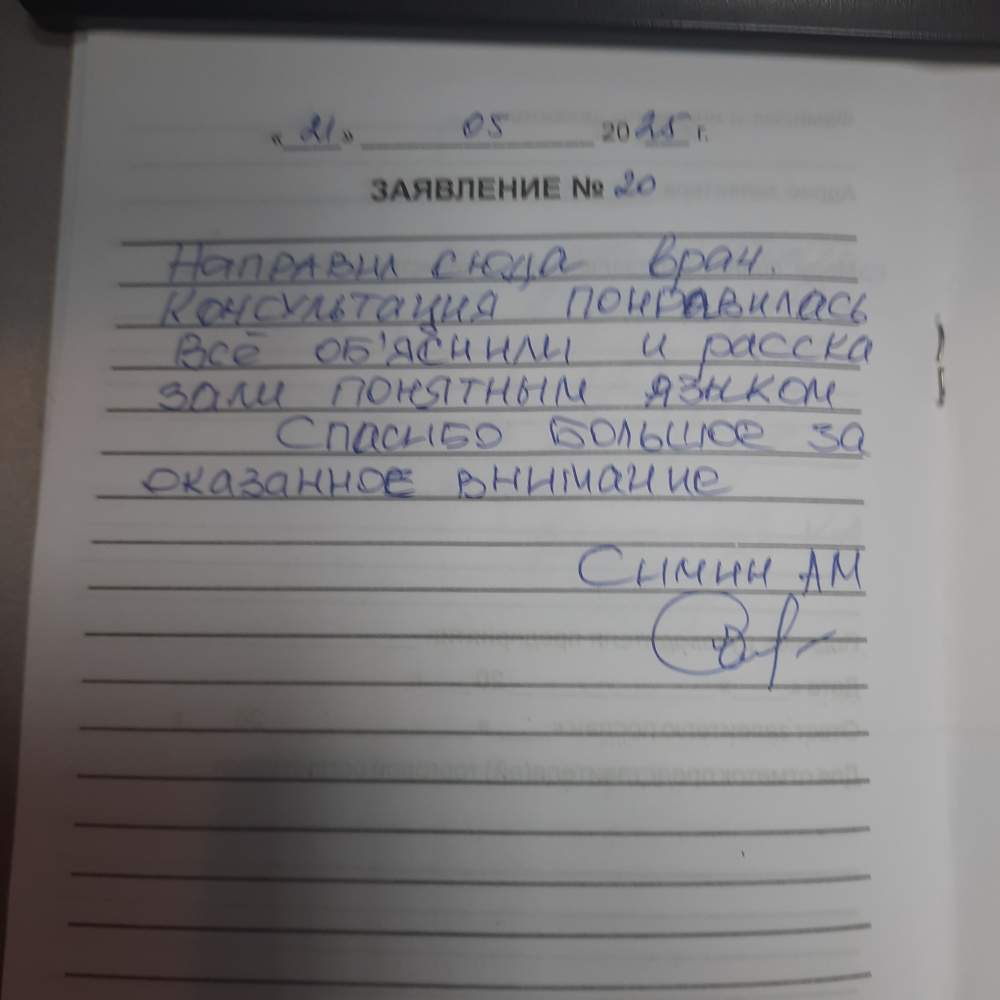 «21» 05 2025 г.
ЗАЯВЛЕНИЕ № 20
Направил сюда врач.
Консультация понравилась
Всё об'яснили и расска
зали понятным языком
Спасибо большое за
оказанное внимание
Симин АМ